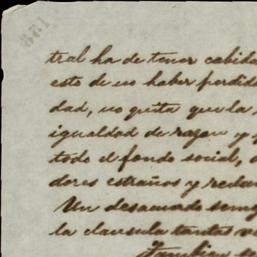 tral ha de tener cabida
esto de no haber perdido
dad, no quita que la
igualdad de razon y
todo el fondo social,
dores estraños y
Un desacuerdo
la clausula tantas
Tambien